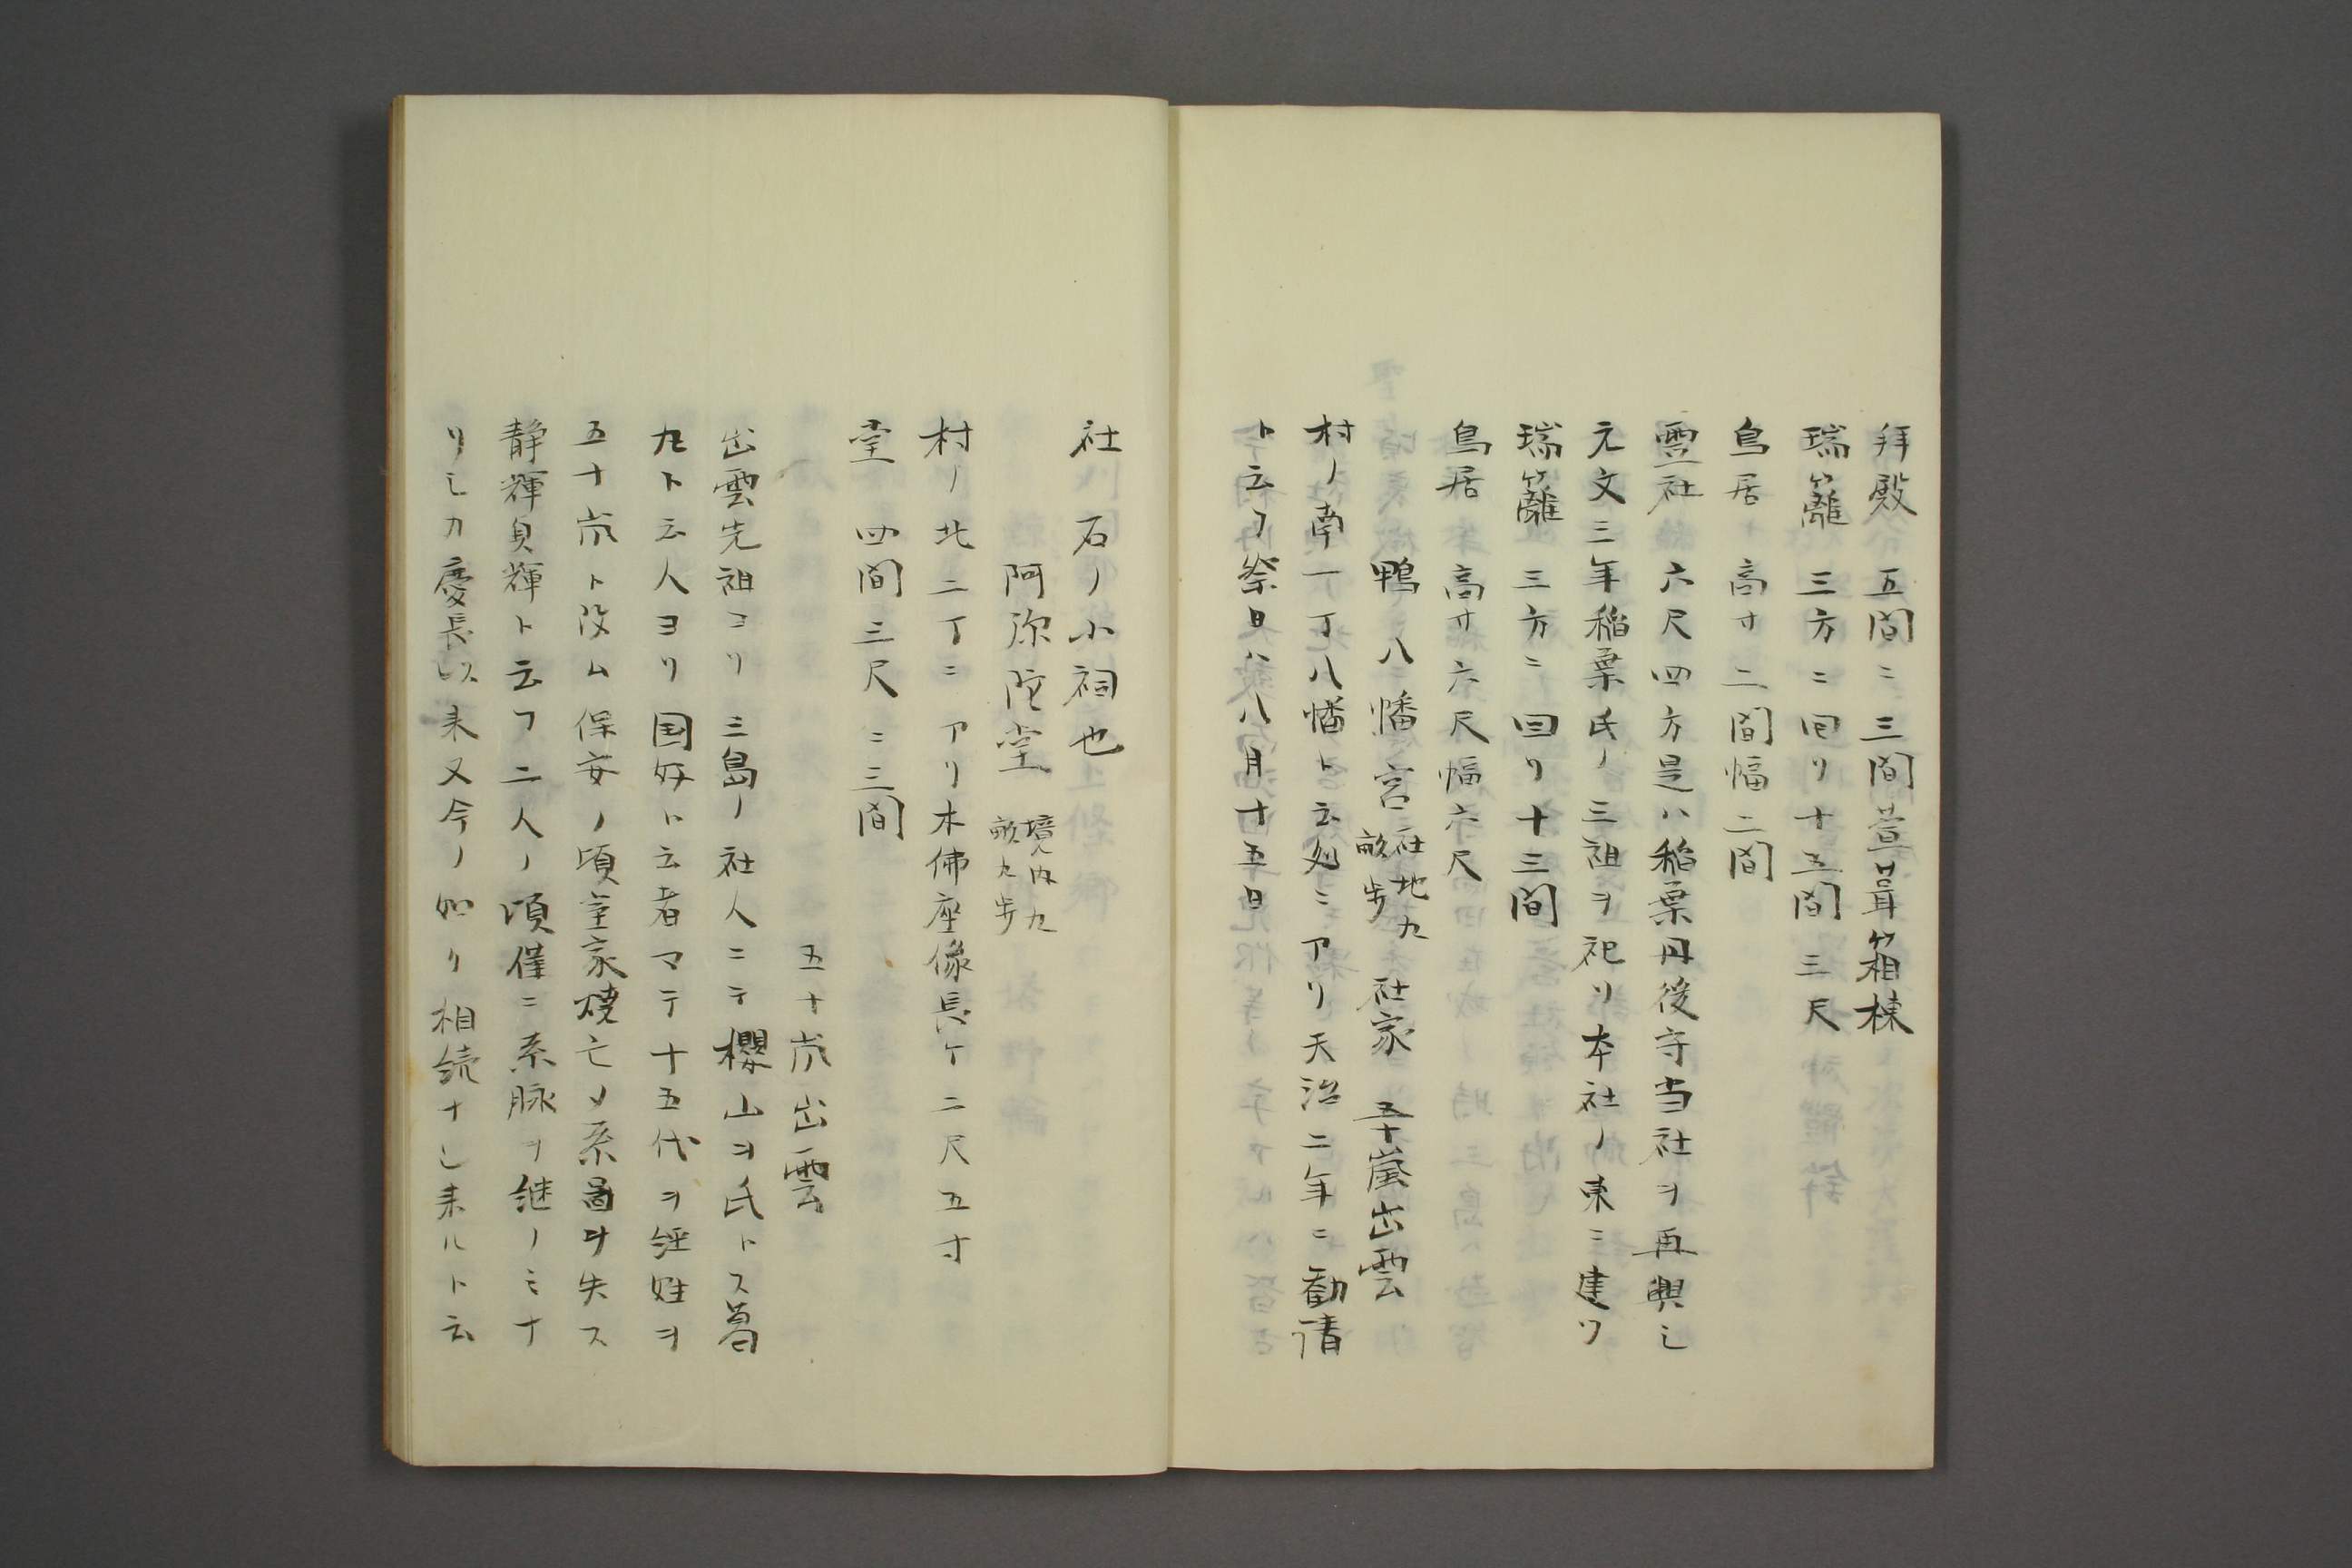 拝殿 五間ニ三間萱葺箱棟
瑞籬 三方ニ回リ十五間三尺
鳥居 高サ二間幅二間
霊社 六尺四方是ハ稲葉丹後守当社ヲ再興シ
元文三年稲葉氏ノ三祖ヲ祀リ本社ノ東ニ建ツ
瑞籬 三方ニ回リ十三間
鳥居 高サ六尺幅六尺
鴨八幡宮 社地九畝歩 社家 五十嵐出雲
村ノ南一丁八幡ト云処ニアリ天治二年ニ勧請
ト云フ祭日ハ八月十五日
社 石ノ小祠也
阿弥陀堂 境内九畝九歩
村ノ北二丁ニアリ木佛座像長ケ二尺五寸
堂 四間三尺ニ三間
五十嵐出雲
出雲先祖ヨリ三島ノ社人ニテ櫻山ヲ氏トス葛
丸ト云人ヨリ国好ト云者マテ十五代ヲ経姓ヲ
五十嵐ト改ム保安ノ頃室家焼亡ソ系圖ヲ失ス
静輝貞輝ト云フ二人ノ頃僅ニ系脉ヲ継ノミナ
リシカ慶長以来又今ノ如ク相続ナシ来ルト云